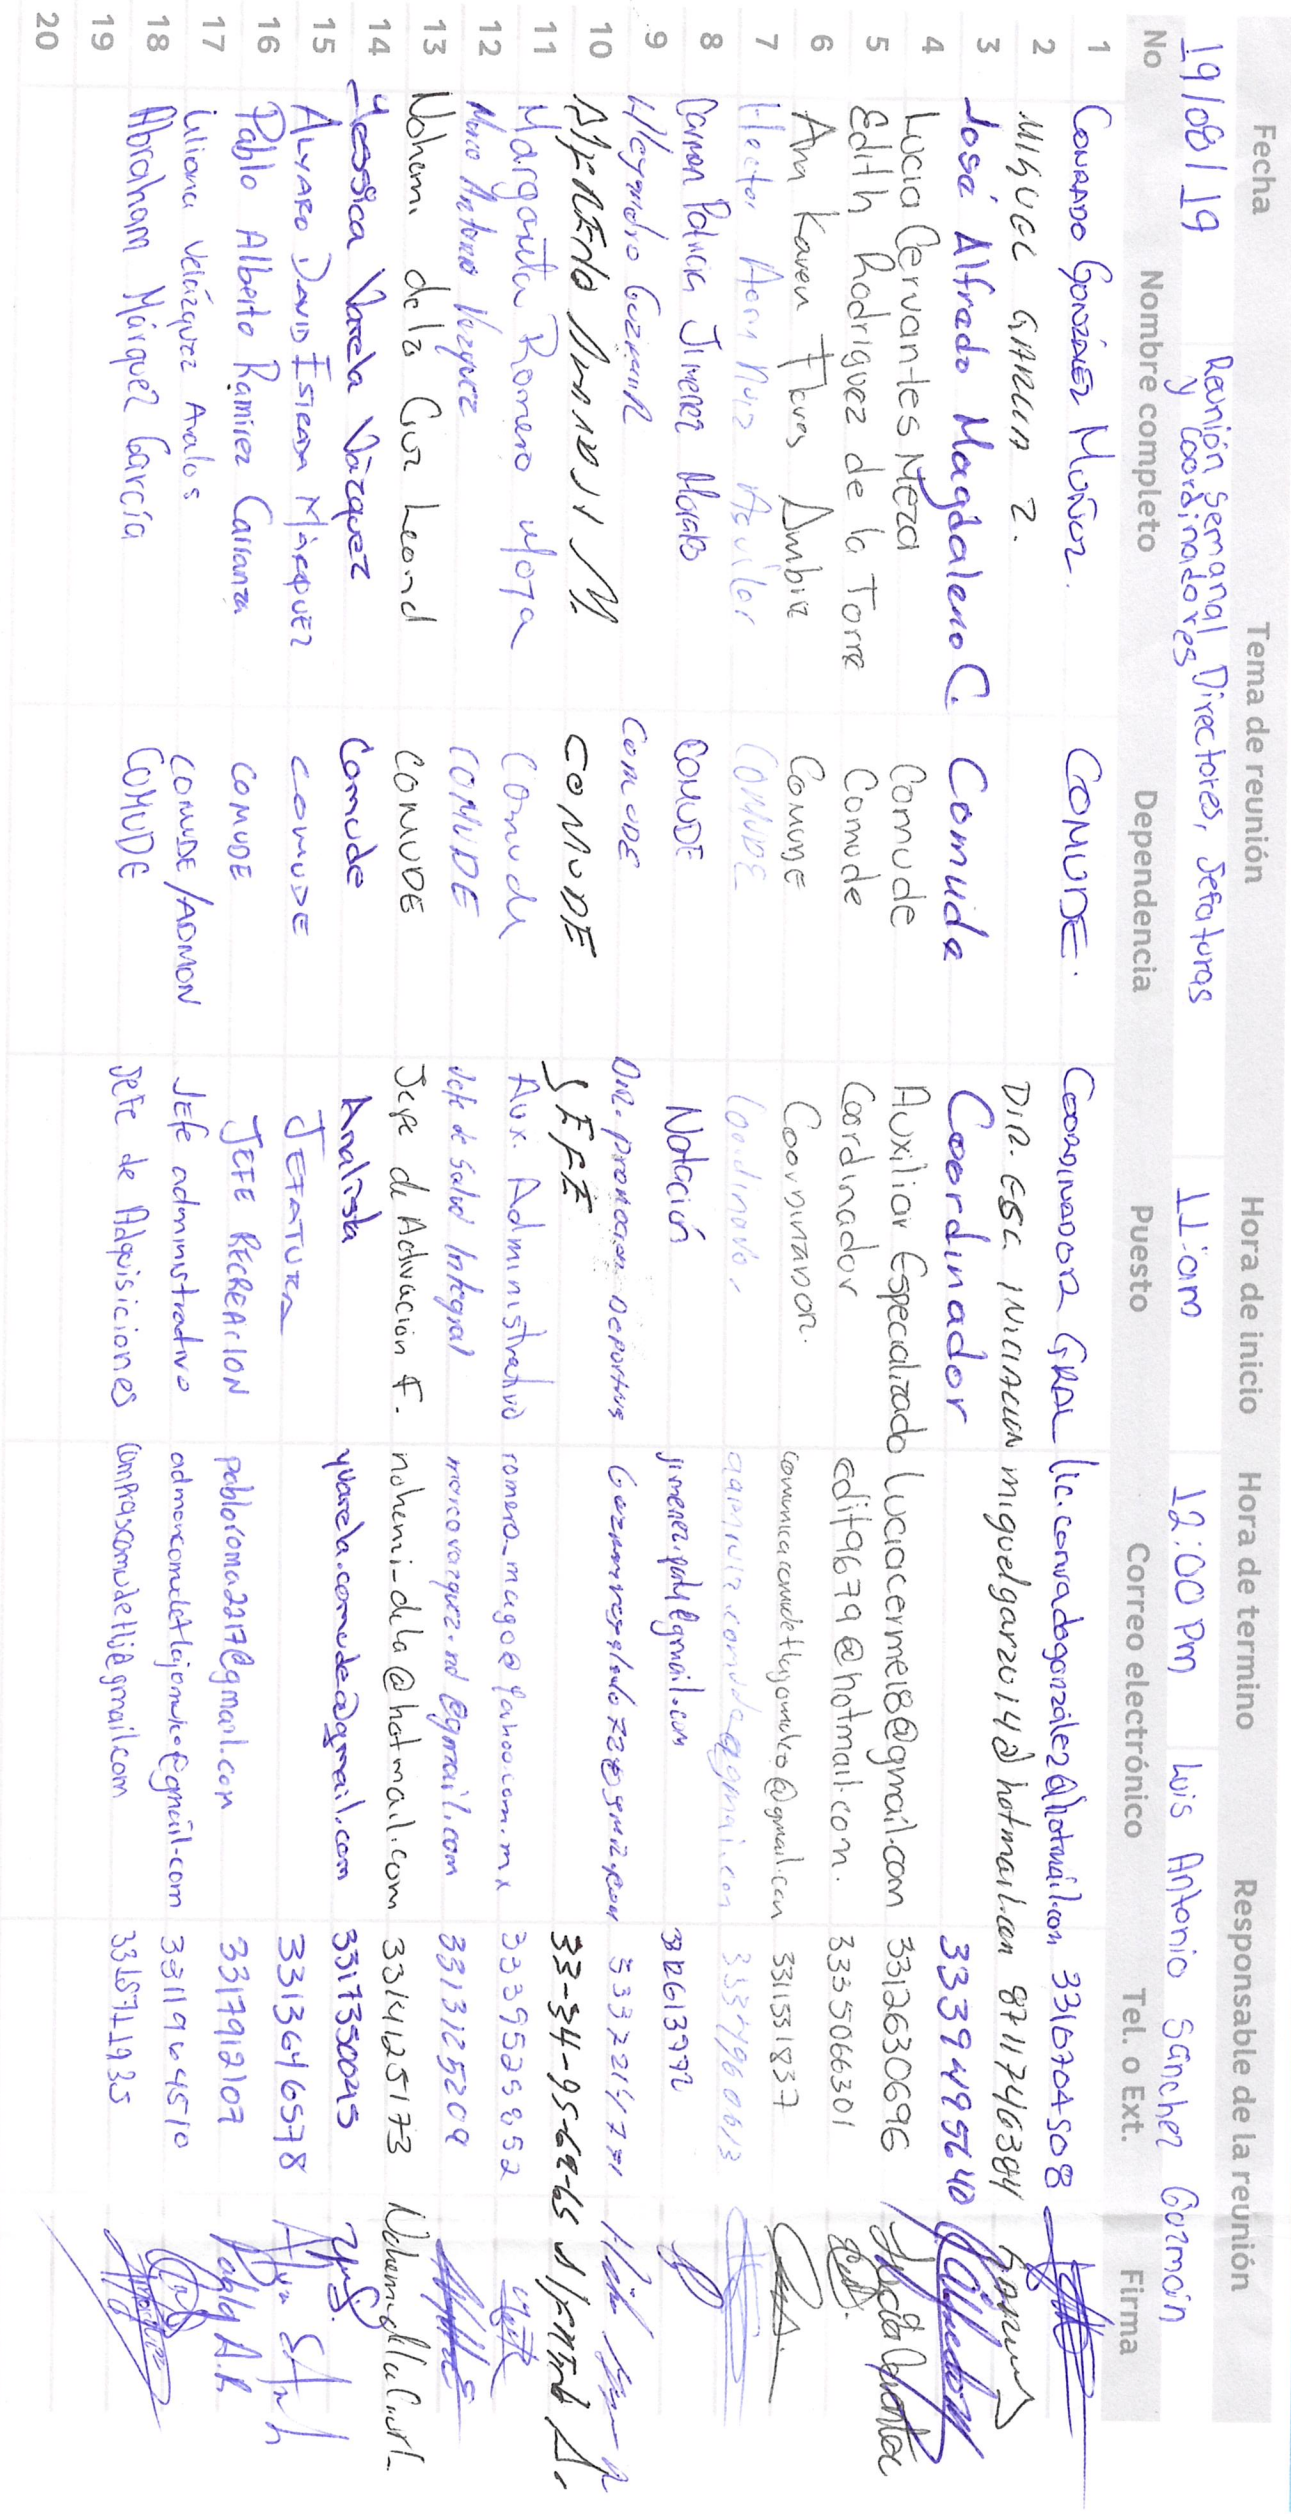 Fecha Tema de reunión Hora de inicio Hora de termino Responsable de la reunión
19/08/19 Reunión semanal Directores, Jefaturas y Coordinadores 11:am 12:00 Pm Luis Antonio Sánchez Guzmán
No Nombre completo Dependencia Puesto Correo electrónico Tel. o Ext. Firma
1 Conrado González Muñoz. COMUDE. Coordinadora Gral lic.conradogonzalez@hotmail.com 3316704508
2 Miguel Garcia Z. Dir. Esc. Iniciacion miguelgarz014@hotmail.com 8711746384
3 José Alfredo Magdaleno C. Comude Coordinador 3339495640
4 Lucia Cervantes Meza Comude Auxiliar Especializado luciacerme18@gmail.com 3312630696
5 Edith Rodriguez de la Torre Comude Coordinador edit9679@hotmail.com. 3335066301
6 Ana Karen Flores Comude Coordinador. comunicacomudetlajomulco@gmail.com 3315531837
7 Hector Aguilar COMUDE Coordinador 3334960613
8 Carmen Patricia Jimenez COMUDE Natación jimenez.paty@gmail.com
9 Alejandro Guzman R COMUDE Dir. promocion Deportiva
10 COMUDE JEFE 33-34-95-62-65
11 Margarita Romero Mota Comude Aux. Administrativo romero_mago@yahoo.com.mx 3339525852
12 Marco Antonio Vazquez COMUDE Jefe de Salud Integral marcovazquez.nd@gmail.com 3313125209
13 Nohemi de la Cruz Leand COMUDE Jefe de Activación F. nohemi_dela@hotmail.com 3314125173
14 Yessica Varela Vázquez Comude Analista yvarela.comude@gmail.com 3317350045
15 Alvaro David Estrada Márquez COMUDE JEFATURA 3313646578
16 Pablo Alberto Ramirez Carranza COMUDE JEFE RECREACION pabloroma2217@gmail.com 3317912107
17 Liliana Velázquez Avalos COMUDE/ADMON Jefe administrativo admoncomudetlajomulco@gmail.com 3311964510
18 Abraham Márquez García COMUDE Jefe de Adquisiciones comprascomudetlj@gmail.com 3318711935
19
20